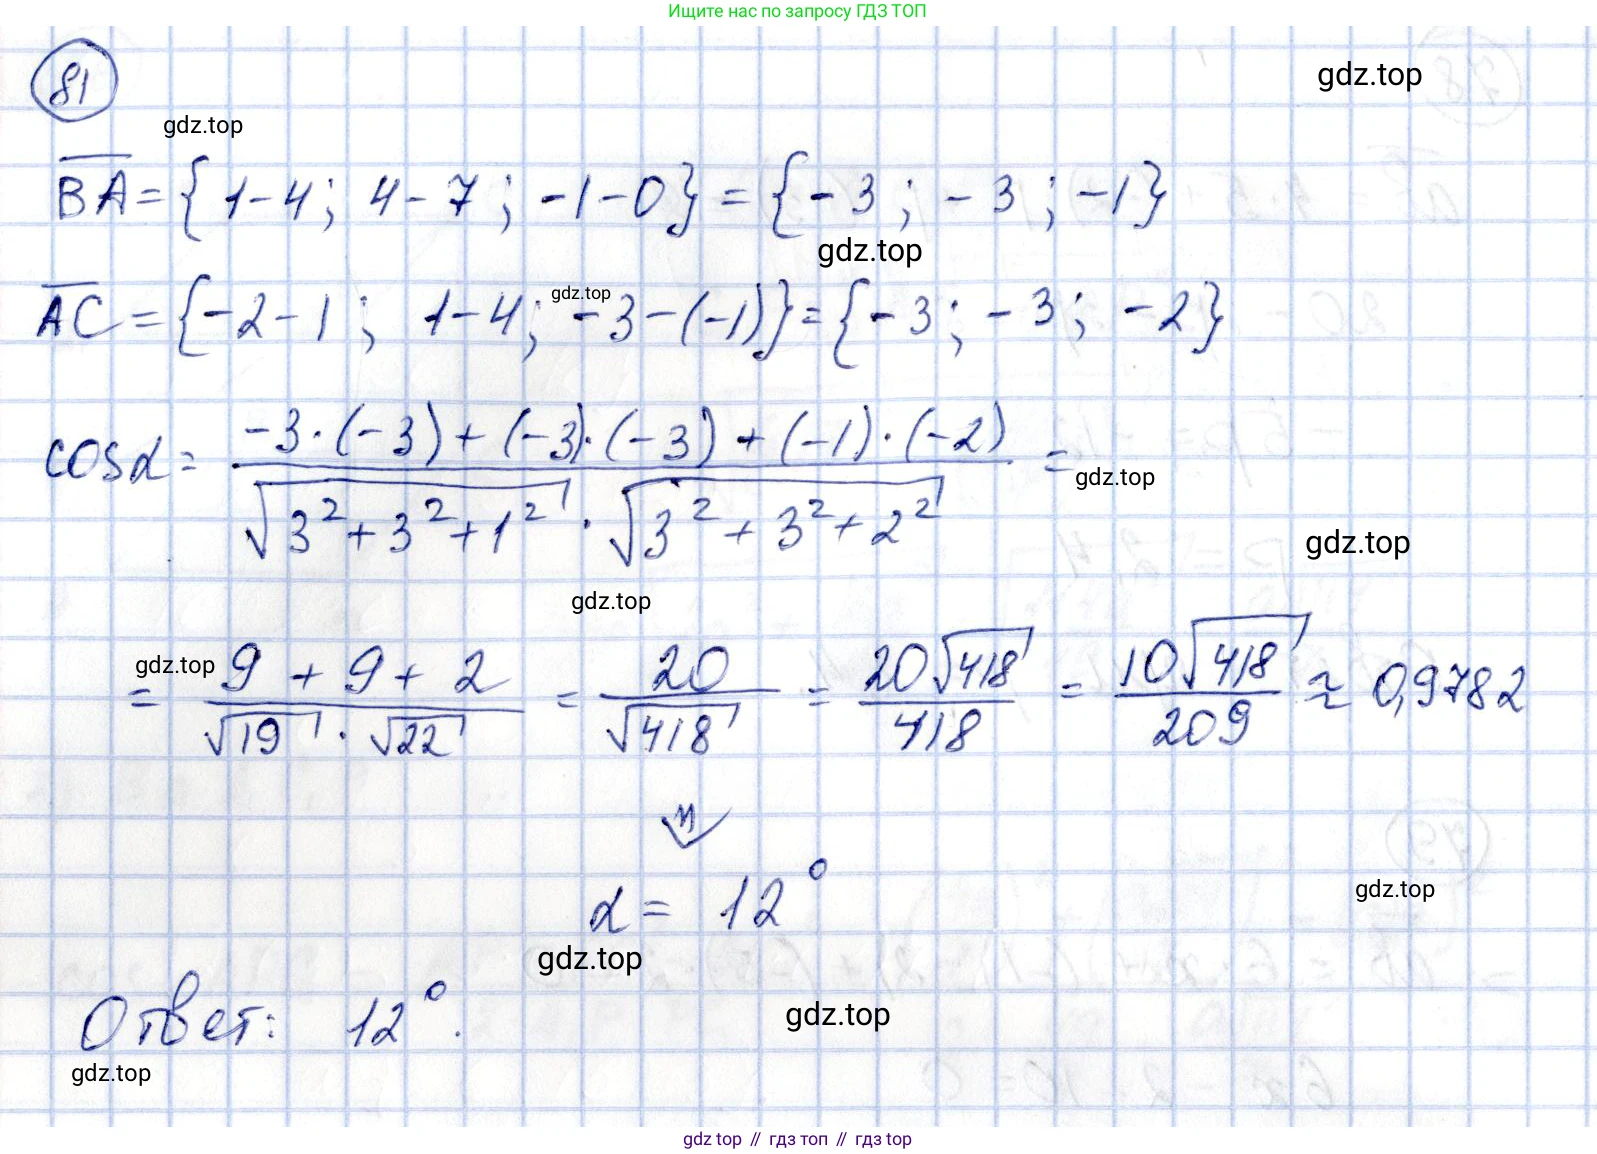 Ищите нас по запросу ГДЗ ТОП
81
gdz.top
gdz.top
BA = {1-4; 4-7; -1-0} = {-3; -3; -1}
gdz.top
gdz.top
AC = {-2-1; 1-4; -3-(-1)} = {-3; -3; -2}
cosα = (-3·(-3)+(-3)·(-3)+(-1)·(-2)) / (√(3²+3²+1²) · √(3²+3²+2²)) =
gdz.top
gdz.top
gdz.top
gdz.top
= (9+9+2) / (√19 · √22) = 20/√418 = 20√418/418 = 10√418/209 ≈ 0,9782
⇓
α = 12°
gdz.top
gdz.top
Ответ: 12°.
gdz.top
gdz.top
gdz top // гдз топ // гдз top